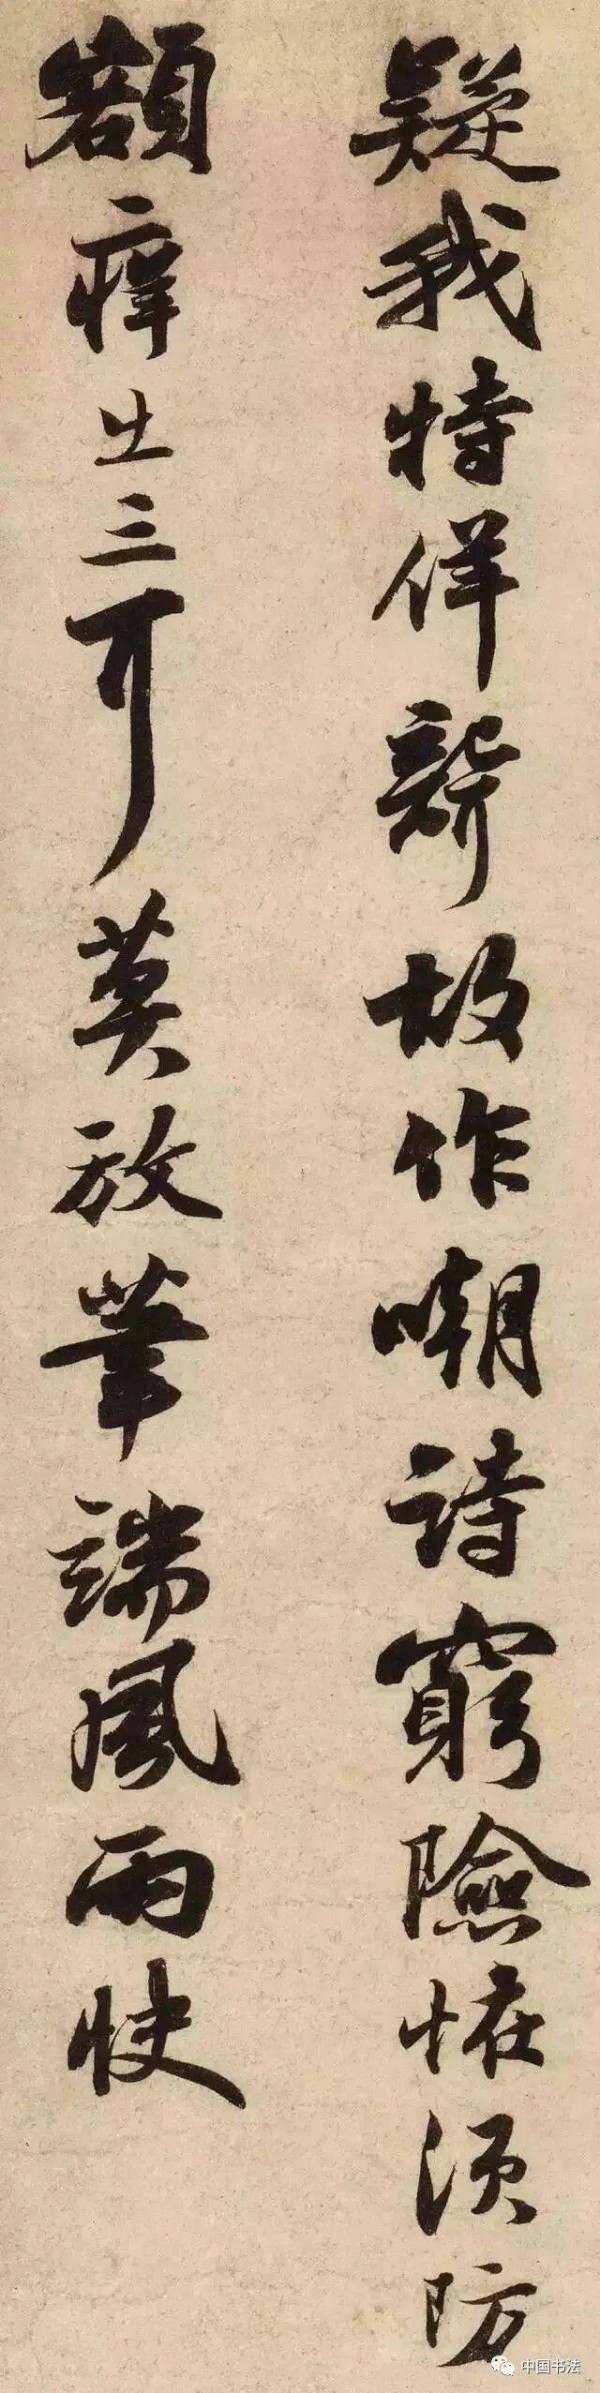 疑我特佯聾故作嘲詩窮險怪須防
額痒出三耳莫放筆端風雨快
中国书法